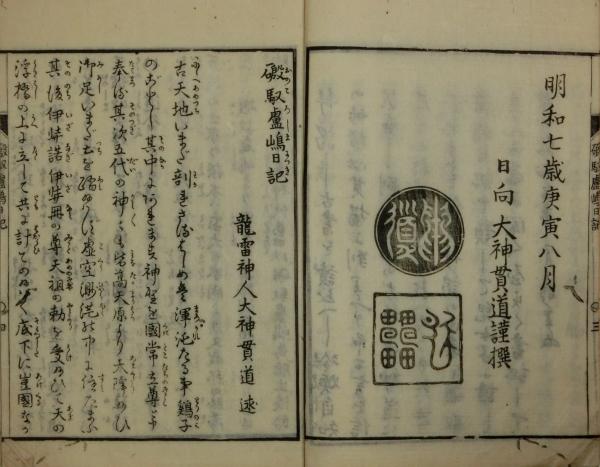 明和七歳庚寅八月
日向 大神貫道謹撰
貫道
磤馭盧嶋日記
三
磤馭盧嶋日記
龍雷神人大神貫道 述
古天地いまだ剖れざるはじめは渾沌たる事鶏子
のごとし其中にあれます神聖を國常立尊と
奉る其次五代の神々も皆高天原より大陸めひ
御足いまだ土を踏めたまはず虚空
其後伊弉諾伊弉冊の尊天祖の勅を受たまひて天の
浮橋の上に立して共に計てのたまはく底下に豈國なか
磤馭盧嶋日記
四